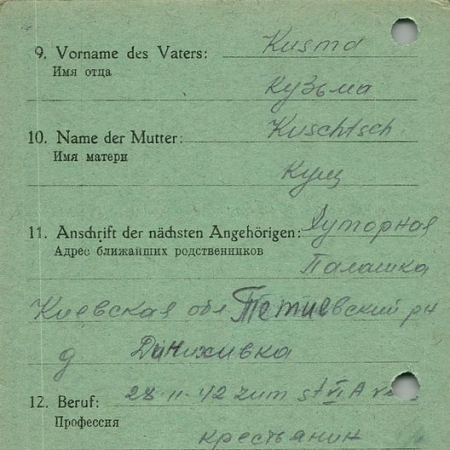 9. Vorname des Vaters: Kusma
Имя отца
Кузьма
10. Name der Mutter: Kuschtsch.
Имя матери
Кущ
11. Anschrift der nächsten Angehörigen: Хуторная
Адрес ближайших родственников
Палашка
Киевская обл Тетиевский рн
д Данихивка
12. Beruf: 28.11.42 zum st VI A
Профессия
крестьянин